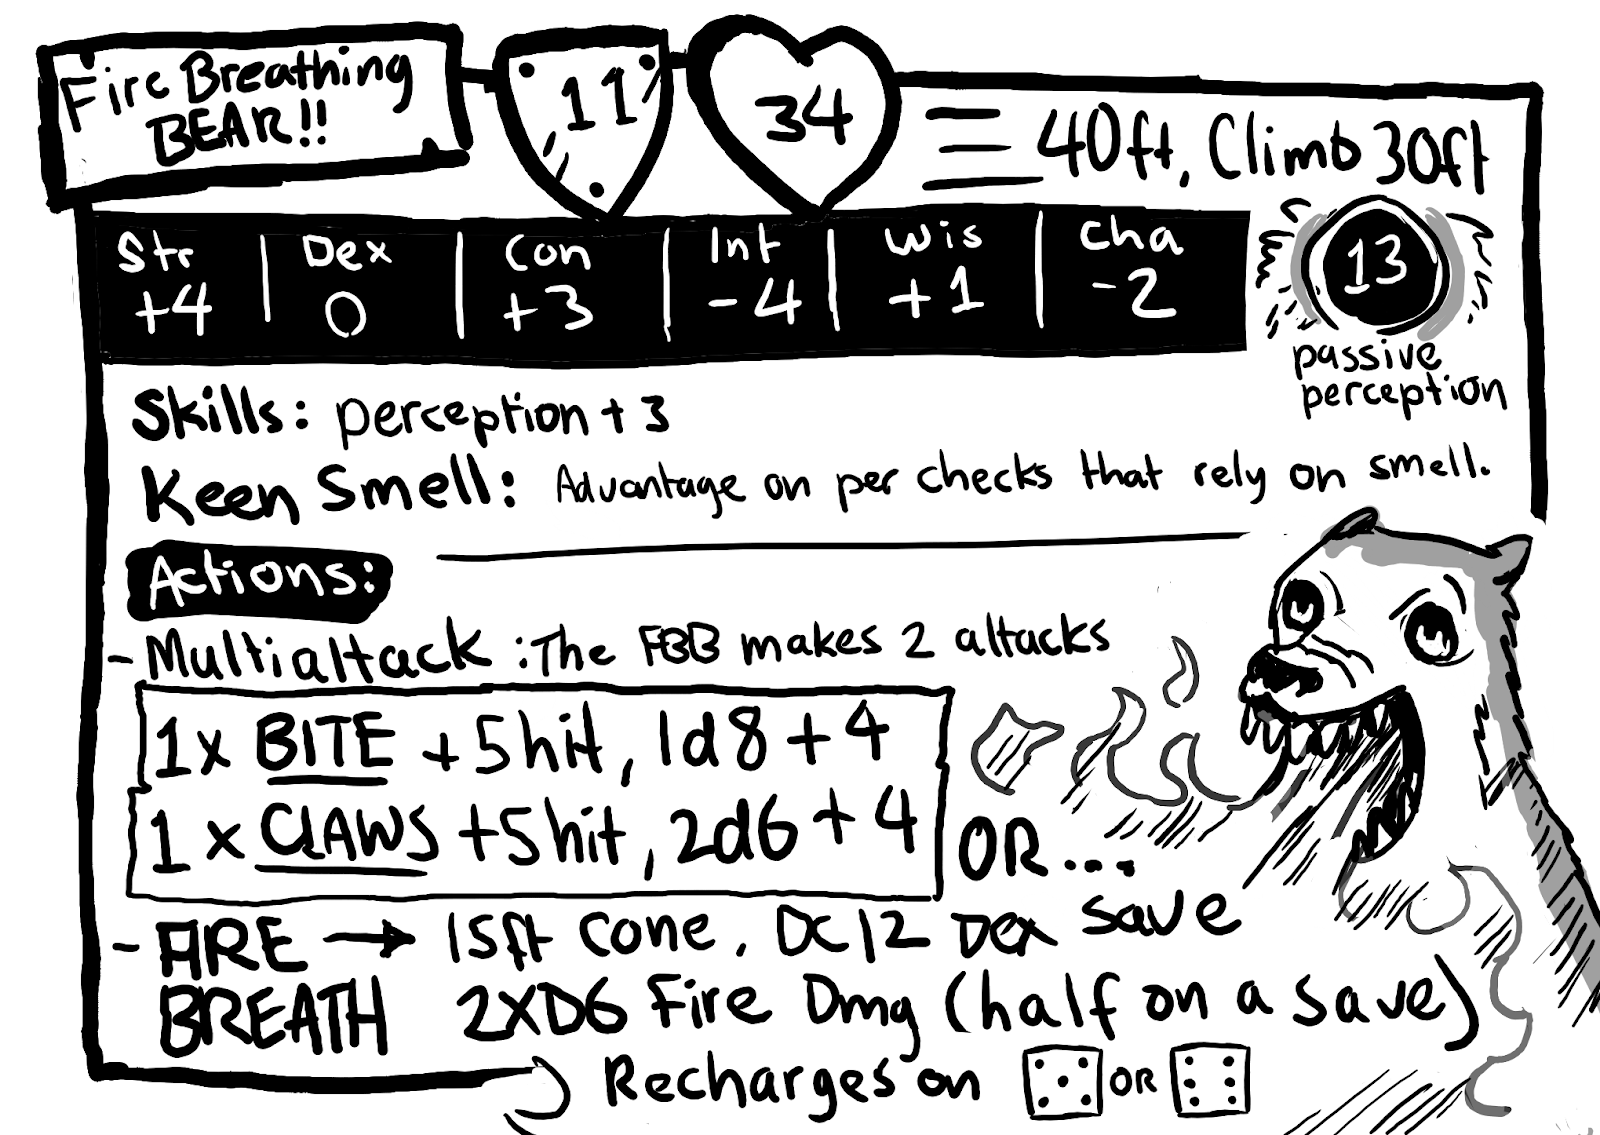 Fire Breathing
BEAR!!
11
34
40ft, Climb 30ft
Str Dex Con Int Wis Cha
+4 0 +3 -4 +1 -2
13
passive
perception
Skills: perception +3
Keen Smell: Advantage on per checks that rely on smell.
Actions:
- Multiattack: The FBB makes 2 attacks
1x BITE +5 hit, 1d8+4
1x CLAWS +5 hit, 2d6+4
OR...
- FIRE → 15ft cone, DC12 Dex save
BREATH 2XD6 Fire Dmg (half on a save)
Recharges on OR